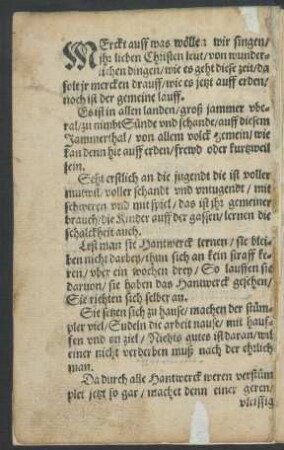 MErckt auff was wöllen wir singen/
jhr lieben Christen leut/von wunder-
lichen dingen/wie es geht diese zeit/da
solt jr mercken drauff/wie es jetzt auff erden/
noch ist der gemeine lauff.
Es ist in allen landen/groß jammer vbe-
ral/zu nimbt Sünde vnd schande/auff diesem
Jammerthal/von allem volck gemein/wie
kan denn hie auff erden/frewd oder kurtzweil
sein.
Seht erstlich an die jugendt die ist voller
mutwil/voller schandt vnd vntugendt/mit
schweren vnd mit spiel/das ist jhr gemeiner
brauch/die Kinder auff der gassen/lernen die
schalckheit auch.
Lest man sie Hantwerck lernen/sie blei-
ben nicht darbey/thun sich an kein straff ke-
ren/vber ein wochen drey/So lauffen sie
daruon/sie haben das Hantwerck gesehen/
Sie richten sich selber an.
Sie setzen sich zu hause/machen der stüm-
pler viel/Sudeln die arbeit nause/mit hauf-
fen vnd on ziel/Nichts gutes ist daran/wil
einer nicht verderben muß nach der ehrlich
man.
Da durch alle Hantwerck weren verstüm
plet jetzt so gar/machet denn einer geren/
vleissig